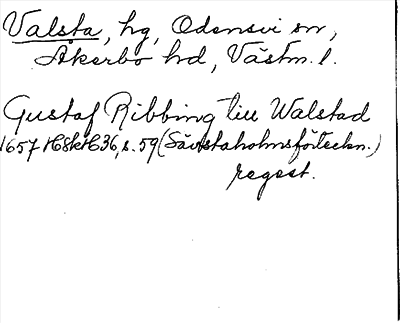 Valsta, hg, Odensvi sn,
Åkerbo hd, Västm. l.
Gustaf Ribbing till Walstad
1657 HSkH 36, s. 59 (Säfstaholmsförteckn.)
regest.